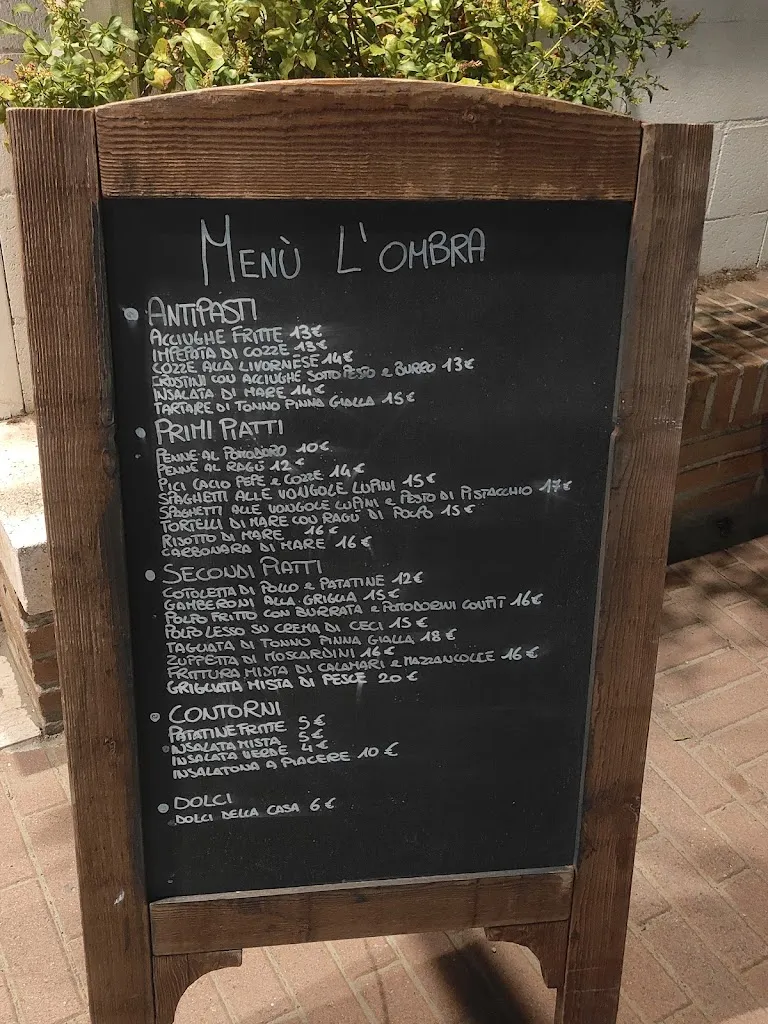 MENÙ L'OMBRA
ANTIPASTI
ACCIUGHE FRITTE 13€
IMPEPATA DI COZZE 13€
COZZE ALLA LIVORNESE 14€
CROSTINI CON ACCIUGHE SOTTO PESTO e BURRO 13€
INSALATA DI MARE 14€
TARTARE DI TONNO PINNA GIALLA 15€
PRIMI PIATTI
PENNE AL POMODORO 10€
PENNE AL RAGÙ 12€
PICI CACIO PEPE e COZZE 14€
SPAGHETTI ALLE VONGOLE LUPINI 15€
SPAGHETTI ALLE VONGOLE LUPINI e PESTO DI PISTACCHIO 17€
TORTELLI DI MARE CON RAGÙ DI POLPO 15€
RISOTTO DI MARE 16€
CARBONARA DI MARE 16€
SECONDI PIATTI
COTOLETTA DI POLLO e PATATINE 12€
GAMBERONI ALLA GRIGLIA 15€
POLPO FRITTO CON BURRATA e POMODORINI CONFIT 16€
POLPO LESSO SU CREMA DI CECI 15€
TAGLIATA DI TONNO PINNA GIALLA 18€
ZUPPETTA DI MOSCARDINI 16€
FRITTURA MISTA DI CALAMARI e MAZZANCOLLE 16€
GRIGLIATA MISTA DI PESCE 20€
CONTORNI
PATATINE FRITTE 5€
INSALATA MISTA 5€
INSALATA VERDE 4€
INSALATONA A PIACERE 10€
DOLCI
DOLCI DELLA CASA 6€